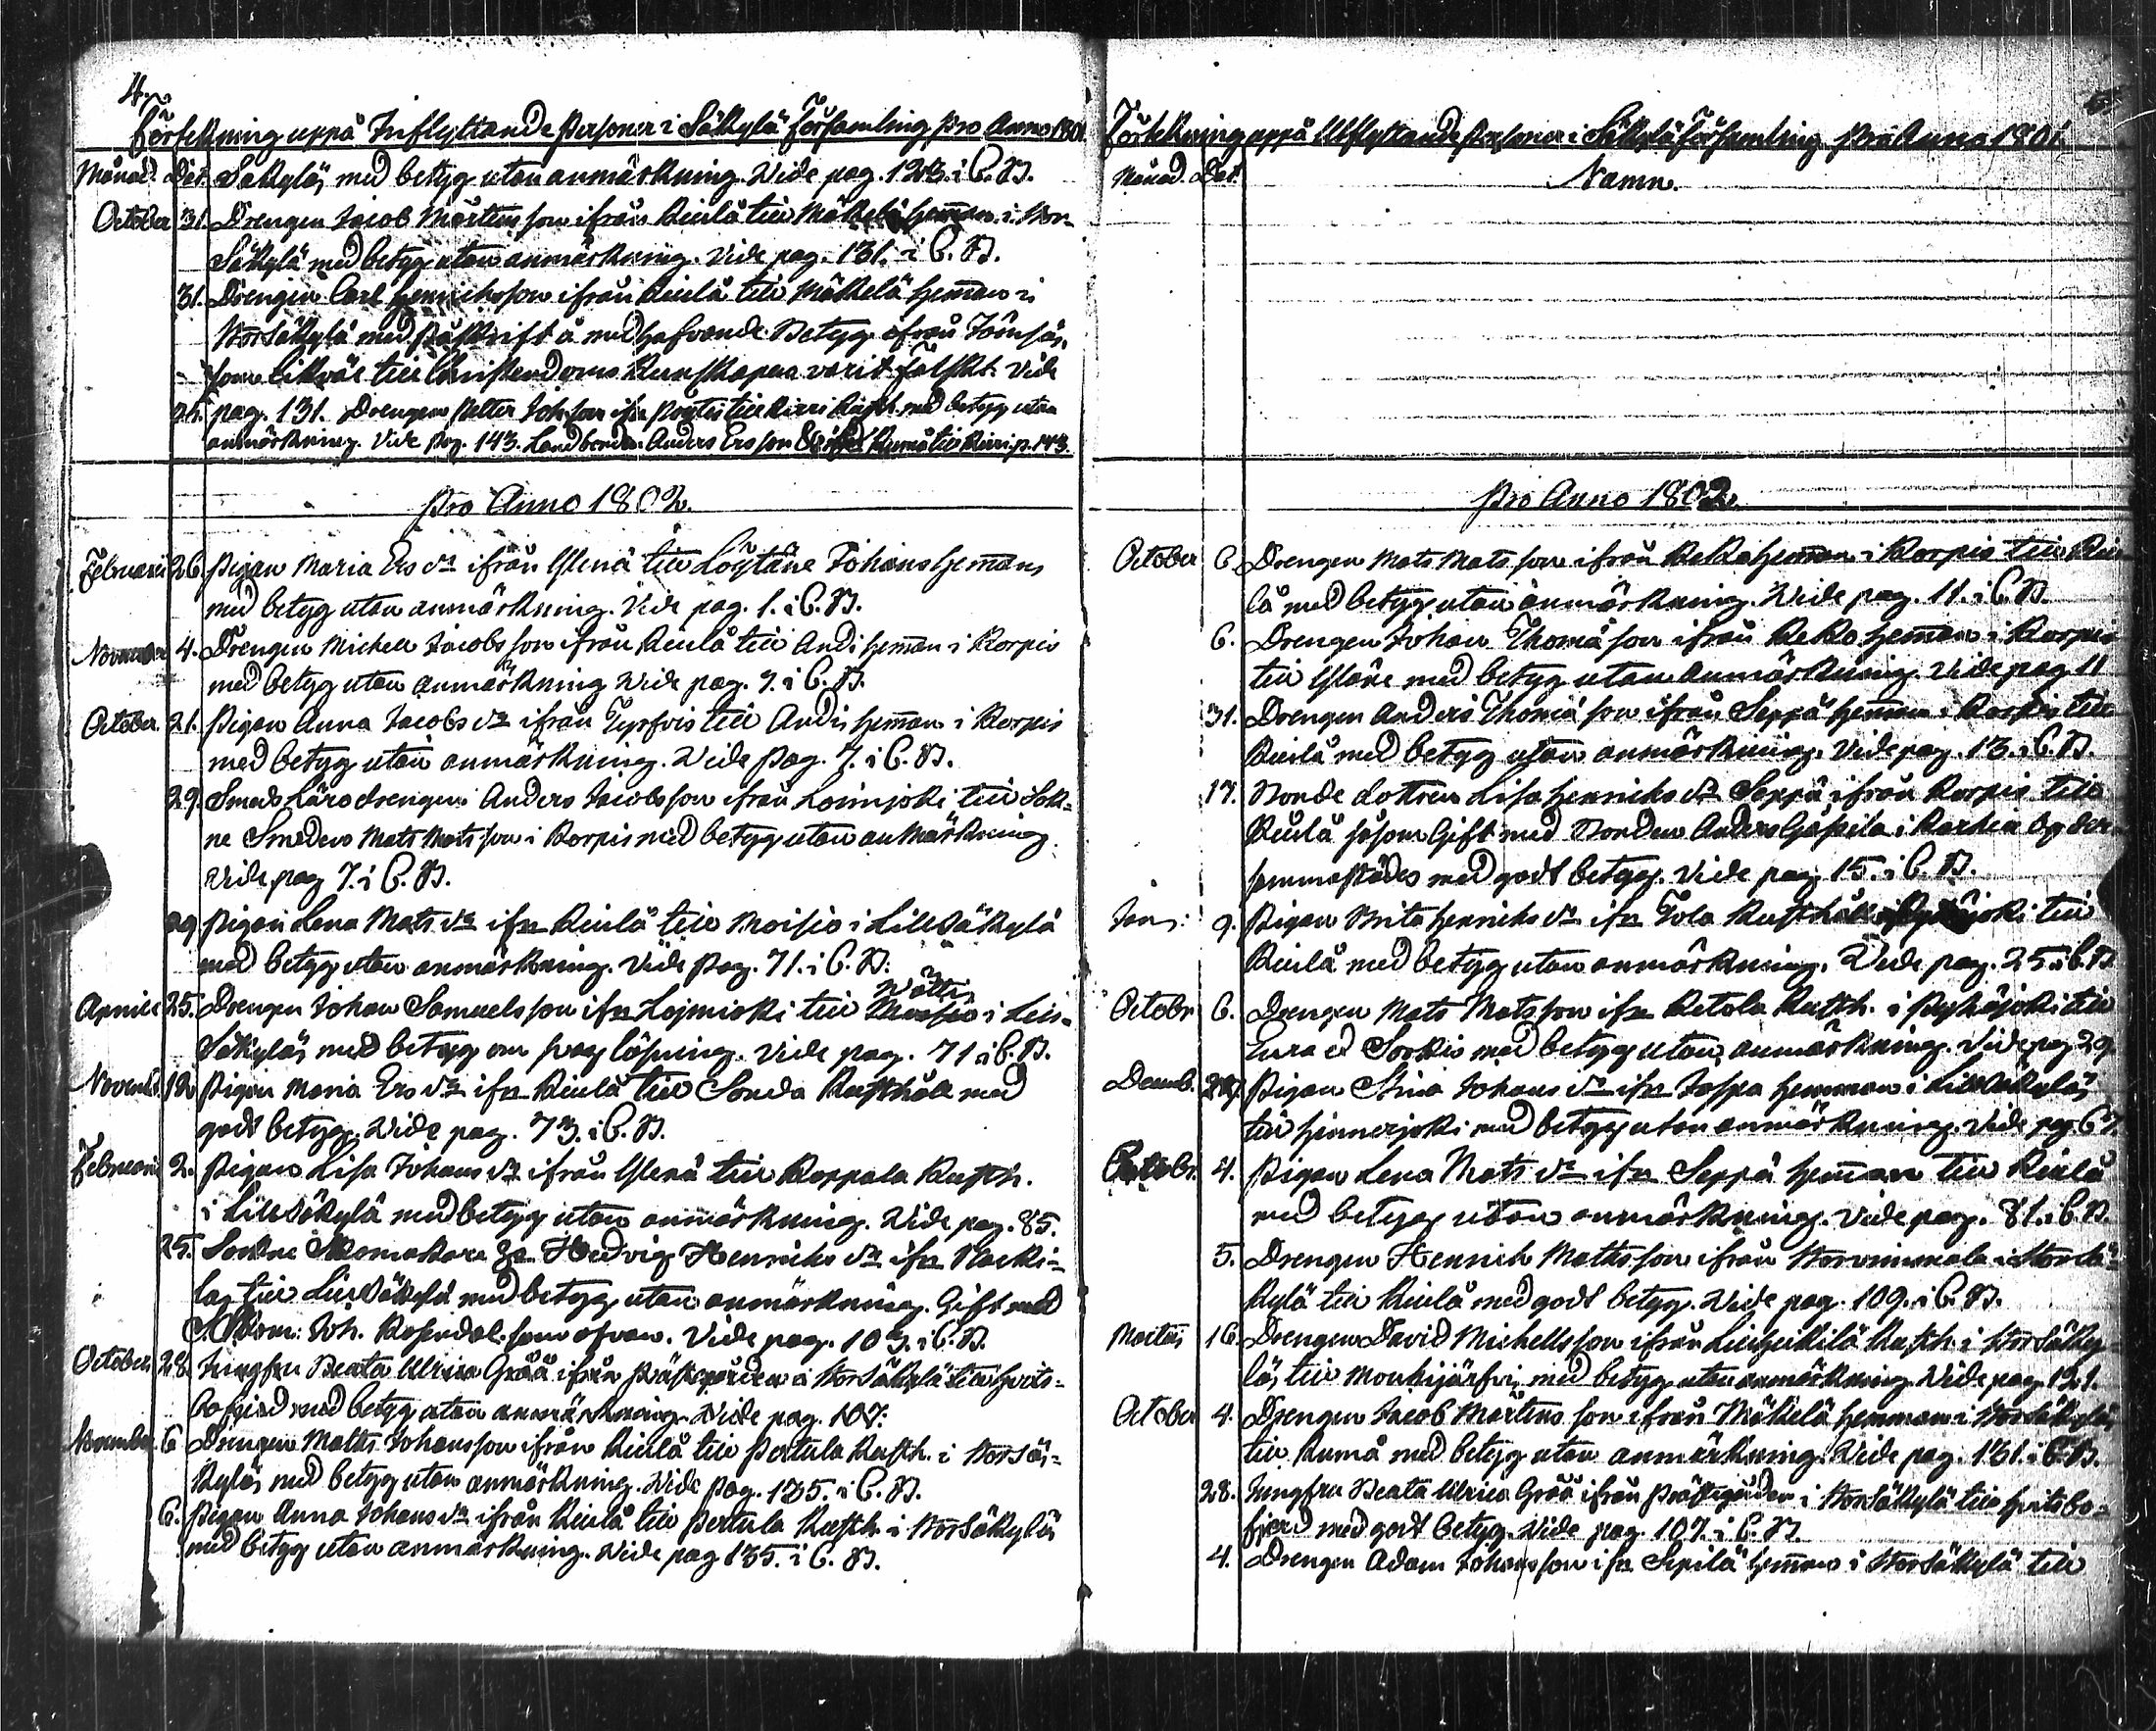 4.
Förtekning uppå Inflyttande Personer i Säkylä Församling pro Anno 1801
Månad. Dat. Säkylä, med betyg utan anmärkning. Vide pag. 123. i C. B.
October 31. Drengen Jacob Mårtensson ifrån Kiulå till Mäkelä Hemman i Stor-
Säkylä med betyg utan anmärkning. Vide pag. 131. i C. B.
31. Drengen Carl Henricksson ifrån Kiulå till Mäkelä Hemman i
Storsäkylä med påskrift å medhafvande Betyg ifrån
som likväl till Christendoms Kunskapen varit falskt. Vide
pag. 131. Drengen Petter Joh. son ifn till med betyg utan
anmärkning. Vide pag. 143. Landbonden Anders Ersson p. 143.
Pro Anno 1802.
Februarii 26. Pigan Maria Ers dr ifrån Ylenä till Löytäne Johans Hemman
med betyg utan anmärkning. Vide pag. 1. i C. B.
November 4. Drengen Michell Jacobsson ifrån Kiulå till Andi Hemman i Korpis
med betyg utan anmärkning Vide pag. 7. i C. B.
October. 21. Pigan Anna Jacobs dr ifrån Tyrfvis till Andis Hemman i Korpis
med betyg utan anmärkning. Vide pag. 7. i C. B.
29. Smeds Läro drengen Anders Jacobsson ifrån Loimjoki till Sok-
ne Smeden Mats Matsson i Korpis med betyg utan anmärkning.
Vide pag 7. i C. B.
29 Pigan Lena Mats dr ifn Kiulå till Moisio i Lillsäkylä
med betyg utan anmärkning. Vide pag. 71. i C. B.
Wätti
Aprill 25. Drengen Johan Samuelsson ifn Lojmioki till i Lill-
Säkylä, med betyg om svag läsning. Vide pag. 71 i C. B.
Novemb. 12 Pigan Maria Ers dr ifn Kiulå till Rusthåll med
godt betyg. Vide pag. 73. i C. B.
Februarii 2. Pigan Lisa Johans dr ifrån Ylenä till Koppala Rusth.
i Lillsäkylä med betyg utan anmärkning. Vide pag. 85.
25. Sockne Skomakare Hedvig Henricks dr ifn
till Lillsäkylä med betyg utan anmärkning. Gift med
Joh. Rosendal. som ofvan. Vide pag. 103. i C. B.
October 28. Jungfru Beata Ulrica Gråå ifrån Prästgården i Storsäkylä till Hvits-
bofjerd med betyg utan anmärkning. Vide pag. 107.
November 6 Drengen Matts Johansson ifrån Kiulå till Pertula Rusth. i Storsä-
kylä, med betyg utan anmärkning. Vide pag. 135. i C. B.
6. Pigan Anna Johans dr ifrån Kiulå till Pertula Rusth. i Storsäkylä
med betyg utan anmärkning. Vide pag 135. i C. B.
Förtekning uppå Utflyttande Personer i Säkylä Församling pro Anno 1801
Månad. Dat. Namn.
Pro Anno 1802.
October 6. Drengen Mats Matsson ifrån Kekka Hemman i Korpis till Kiu-
lå med betyg utan anmärkning. Vide pag. 11. i C. B.
6. Drengen Johan Thomasson ifrån Hemman i Korpis
till Yläne med betyg utan anmärkning. Vide pag 11
31. Drengen Anders Thomasson ifrån Seppä Hemman i Korpis till
Kiulå med betyg utan anmärkning. Vide pag. 13. i C. B.
17. Bonde dottren Lisa Henricks dr Seppä ifrån Korpis till
Kiulå såsom Gift med Bonden Anders i
sammastädes med godt betyg. Vide pag 15. i C. B.
Jan: 9. Pigan Brita Henricks dr ifn Tola Rusthåll till
Kiulå med betyg utan anmärkning. Vide pag. 25. i C. B.
Octobr 6. Drengen Mats Matsson ifn Ketola Rusth. i Pyhäjoki till
Eura med betyg utan anmärkning. Vide pag 29
Decemb. Pigan Stina Johans dr ifn Jaspa Hemman i Lillsäkylä,
till Hinnerjoki med betyg utan anmärkning. Vide pag. 67.
Octobr. 4. Pigan Lena Mats dr ifn Seppä Hemman till Kiulå
med betyg utan anmärkning. Vide pag. 81. i C. B.
5. Drengen Henrich Mattsson ifrån i Storsä-
kylä till Kiulå med godt betyg. Vide pag. 109. i C. B.
Martius 16. Drengen David Michellsson ifrån Rusth. i Storsäky-
lä, till Mouhijärfvi, med betyg utan anmärkning. Vide pag. 121.
October 4. Drengen Jacob Mårtensson ifrån Mäkelä Hemman i Storsäkylä,
till Kumå med betyg utan anmärkning. Vide pag. 131. i C. B.
28. Jungfru Beata Ulrica Gråå ifrån Prästgården i Storsäkylä till Hvitsbo-
fjerd med godt betyg. Vide pag. 107. i C. B.
4. Drengen Adam Johansson ifn Sepilä Hemman i Storsäkylä till